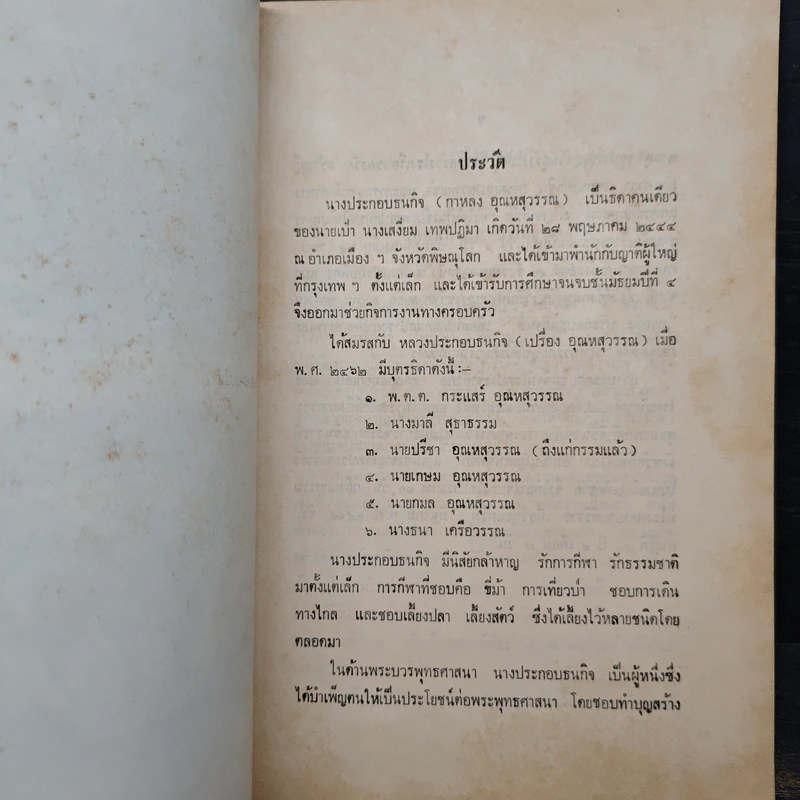 ประวัติ
นางประกอบธนกิจ (กาหลง อุณหสุวรรณ) เป็นธิดาคนเดียว
ของนายเป๋า นางเสงี่ยม เทพปฏิมา เกิดวันที่ ๒๘ พฤษภาคม ๒๔๔๔
ณ อำเภอเมือง ฯ จังหวัดพิษณุโลก และได้เข้ามาพำนักกับญาติผู้ใหญ่
ที่กรุงเทพ ฯ ตั้งแต่เล็ก และได้เข้ารับการศึกษาจนจบชั้นมัธยมปีที่ ๔
จึงออกมาช่วยกิจการงานทางครอบครัว
ได้สมรสกับ หลวงประกอบธนกิจ (เปรื่อง อุณหสุวรรณ) เมื่อ
พ.ศ. ๒๔๖๒ มีบุตรธิดาดังนี้:-
๑. พ.ต.ต. กระแสร์ อุณหสุวรรณ
๒. นางมาลี สุธาธรรม
๓. นายปรีชา อุณหสุวรรณ (ถึงแก่กรรมแล้ว)
๔. นายเกษม อุณหสุวรรณ
๕. นายกมล อุณหสุวรรณ
๖. นางธนา เครือวรรณ
นางประกอบธนกิจ มีนิสัยกล้าหาญ รักการกีฬา รักธรรมชาติ
มาตั้งแต่เล็ก การกีฬาที่ชอบคือ ขี่ม้า การเที่ยวป่า ชอบการเดิน
ทางไกล และชอบเลี้ยงปลา เลี้ยงสัตว์ ซึ่งได้เลี้ยงไว้หลายชนิดโดย
ตลอดมา
ในด้านพระบวรพุทธศาสนา นางประกอบธนกิจ เป็นผู้หนึ่งซึ่ง
ได้บำเพ็ญตนให้เป็นประโยชน์ต่อพระพุทธศาสนา โดยชอบทำบุญสร้าง